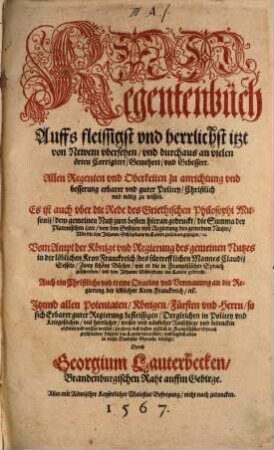 Regentenbuch
Auffs fleissigst vnd herrlichst itzt
von Newem vbersehen / vnd durchaus an vielen
örten Corrigiret / Gemehret / vnd Gebessert.
Allen Regenten vnd Oberkeiten zu anrichtung vnd
besserung erbarer vnd guter Policey / Christlich
vnd nötig zu wissen.
Es ist auch vber die Rede des Griechischen Philosophi Mu-
sonij / dem gemeinen Nutz zum besten hieran gedruckt / die Summa der
Platonischen Lere / von den Gesetzen vnd Regierung des gemeinen Nutzes /
Vom Ampt der Könige vnd Regierung des gemeinen Nutzes
in der löblichen Kron Franckreich des fürtrefflichen Mannes Claudij
Sesselij / Zwey schöne Bücher / wie er die in Frantzösischer Sprach
geschrieben / vnd von Johanne Sleidano ins Latein gebracht.
Auch ein Christliche vnd trewe Oration vnd Vermanung an die Re-
gierung der löblichen Kron Franckreich / etc.
Jtzund allen Potentaten / Königen / Fürsten vnd Herrn / so
sich Erbarer guter Regierung befleissigen / Dergleichen in Policey vnd
Durch
Georgium Lauterbecken /
Brandenburgischen Raht auffm Gebirge.
Alles mit Römischer Keyserlicher Maiestat Befreyung / nicht nach zudrucken.
1567.